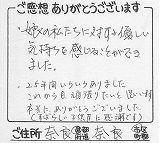 ご感想 ありがとうございます
・嫁の私たちに対する優しい
気持ちを感じることができ
ました。
・25年間いろいろありました
これからも頑張りたいと思います
本当にありがとうございました
(すばらしい一休庵に感謝です)
ご住所 奈良 都道府県 奈良 市区町村